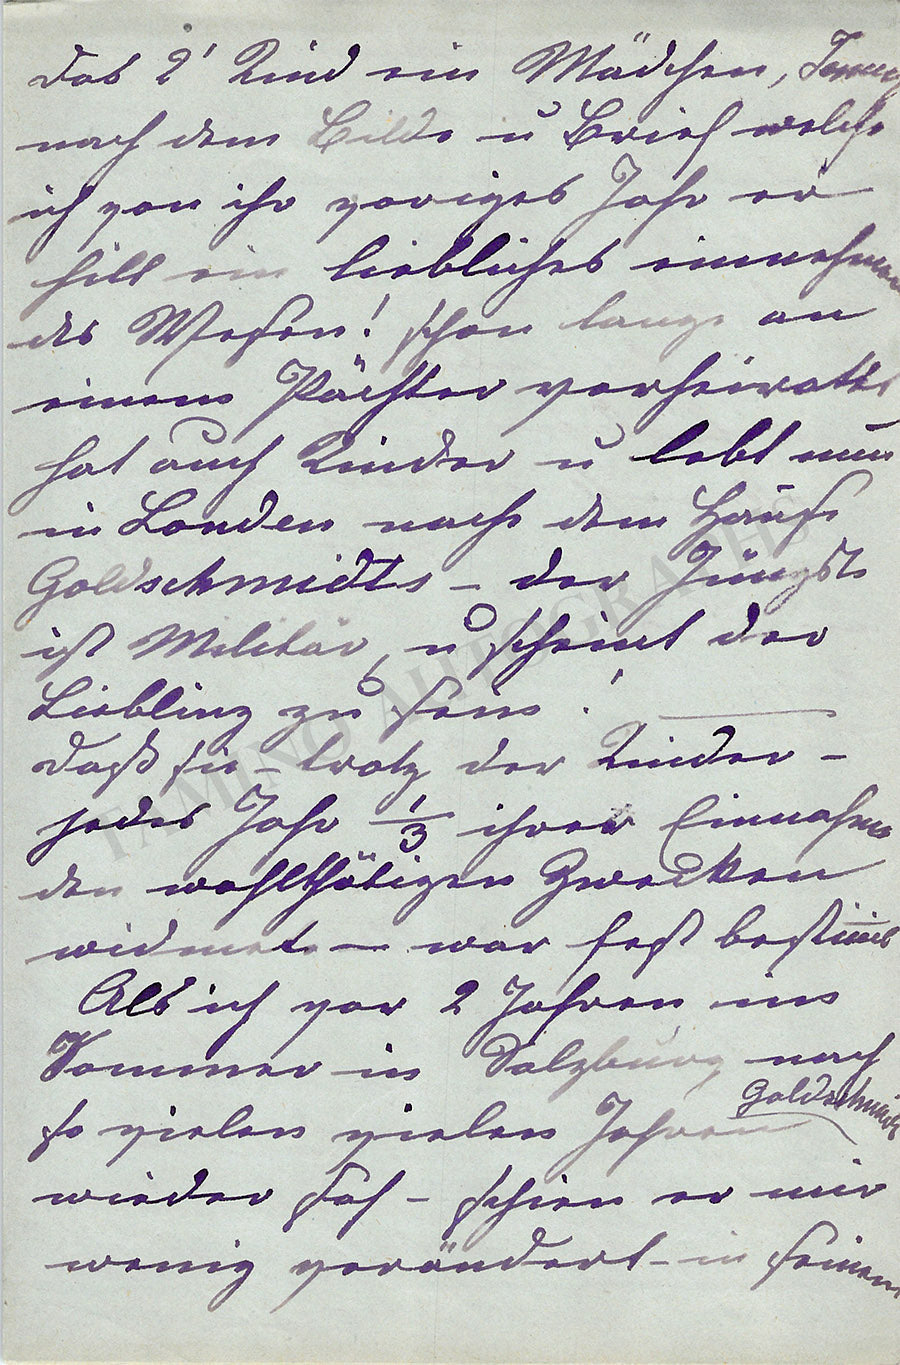 das 2' Kind ein Mädchen, Jenny
nach dem Bilde u Brief welche
ich von ihr voriges Jahr er
hilt ein liebliches einnehmen
des Wesen! schon lange an
einem Pächter verheiratet
hat auch Kinder u lebt nun
in London nach dem Hause
Goldschmidts – der Jüngste
ist Militär, u scheint der
Liebling zu sein !
Daß sie – trotz der Kinder –
jedes Jahr 1/3 ihrer Einnahme
den wohlthätigen Zwecken
widmete – war fest bestimt
Als ich vor 2 Jahren im
Sommer in Salzburg nach
Goldschmidt
so vielen vielen Jahren
wieder sah – schien er mir
wenig verändert – in seinem
TAMINO AUTOGRAPHS